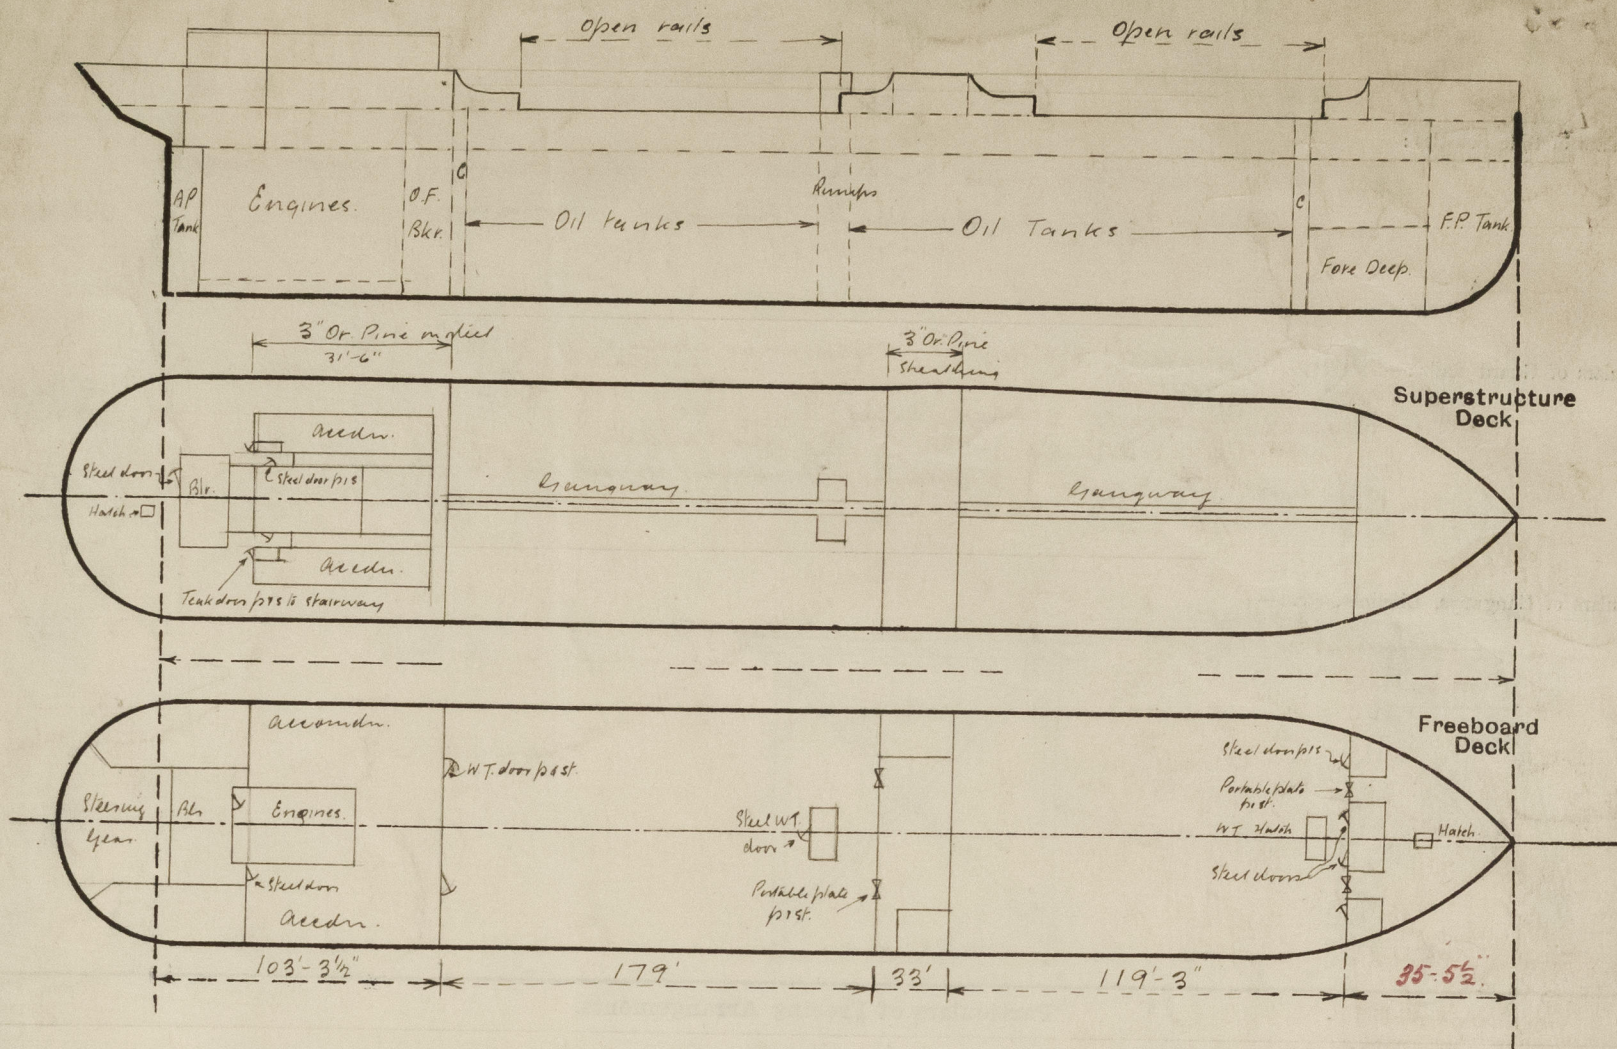 Open rails
Open rails
AP
Tank
Engines.
O.F.
Bkr.
C
Oil tanks
Pumps
Oil Tanks
C
Fore Deep.
F.P. Tank
3" Or. Pine
31'-6"
3" Or. Pine
Sheathing
Superstructure
Deck
Accdn.
Steel door
Blr.
Steel door p&s
Hatch
Gangway.
Gangway.
Accdn.
Teak door p&s to stairway
Freeboard
Deck
Accomdn.
W.T. door p&st.
Steering
Gear
Blr
Engines.
Steel door
Accdn.
Steel W.T.
door
Portable plate
p&st.
Steel door p&s
Portable plate
p&st.
W.T. Hatch
Hatch.
Steel doors
103'-3½"
179'
33'
119'-3"
35-5½".